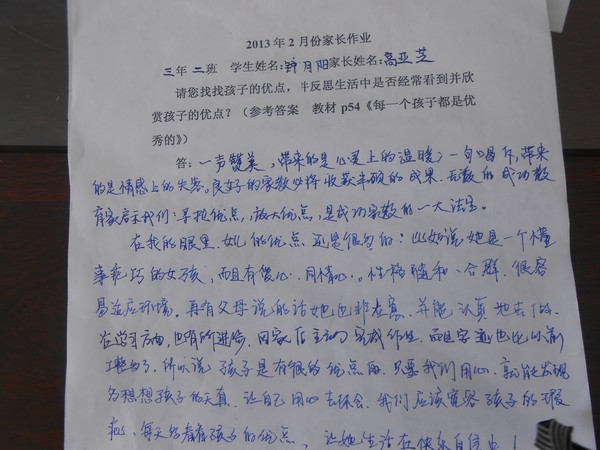 2013年2月份家长作业
三年二班 学生姓名:月阳家长姓名:高亚芝
请您找找孩子的优点,并反思生活中是否经常看到并欣
赏孩子的优点?(参考答案 教材p54《每一个孩子都是优
秀的》)
答:一声赞美,带来的是心灵上的温暖;一句喝斥,带来
的是情感上的失落。良好的家教必将收获丰硕的成果。无数的成功教
育家启示我们:寻找优点,放大优点,是成功家教的一大法宝。
在我的眼里,女儿的优点还是很多的:比如说她是一个懂
事乖巧的女孩,而且有爱心,同情心。性格随和、合群,很容
易适应环境。再有父母说的话她也非在意,并能认真地去做。
在学习方面,也有所进步,回家后主动完成作业,而且字迹也比以前
工整多了。所以说孩子是有很多的优点的,只要我们用心,就能发现
多想想孩子的天真,让自己用心去体会,我们应该宽容孩子的瑕
疵,每天多看看孩子的优点,让她生活在快乐自信中!